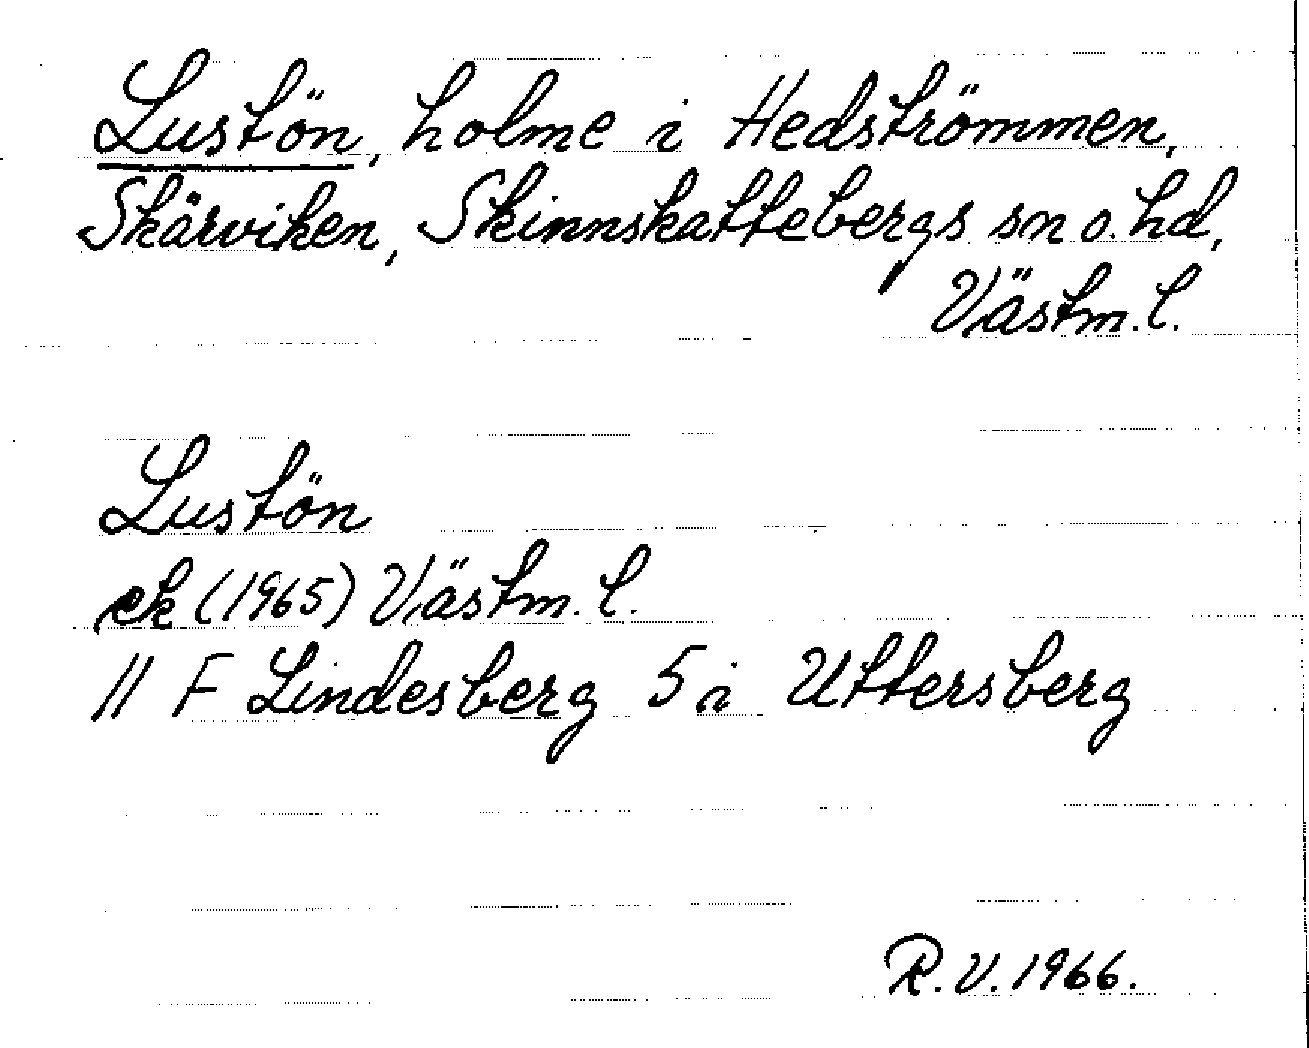 Lustön, holme i Hedströmmen,
Skärviken, Skinnskattebergs sn o. hd,
Västm. l.
Lustön
ek (1965) Västm. l.
11 F Lindesberg 5 i Uttersberg
R.V. 1966.